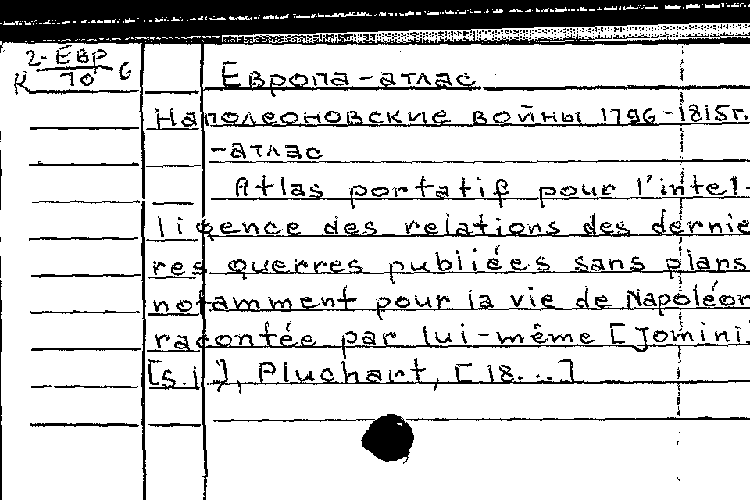 2-Евр
К 70 6
Европа-атлас
Наполеоновские войны 1796-1815г.
-атлас
Atlas portatif pour l'intel-
ligence des relations des dernie
res guerres publiées sans plans
notamment pour la vie de Napoléon
racontée par lui-même [Jomini]
[s.l.], Pluchart, [18...]